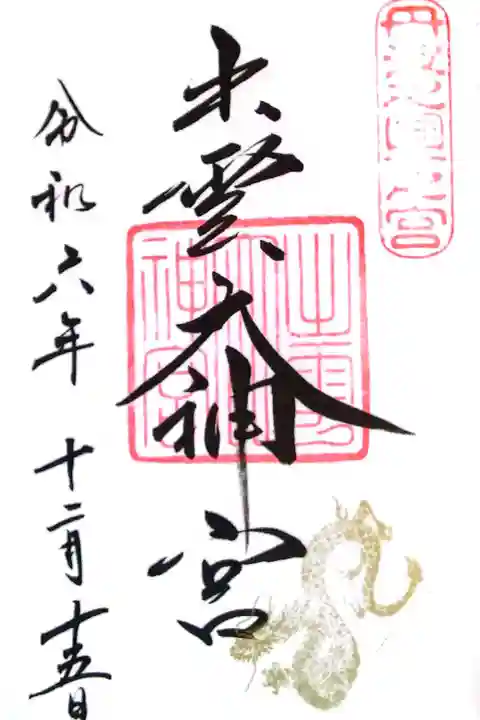 出雲大神宮
令和六年十二月十五日
出雲
神宮